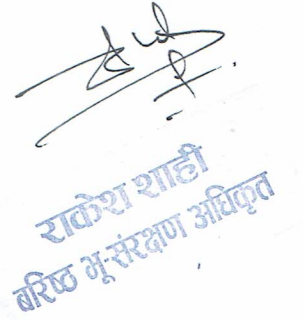 राकेश शाही
बरिष्ठ भू-संरक्षण अधिकृत